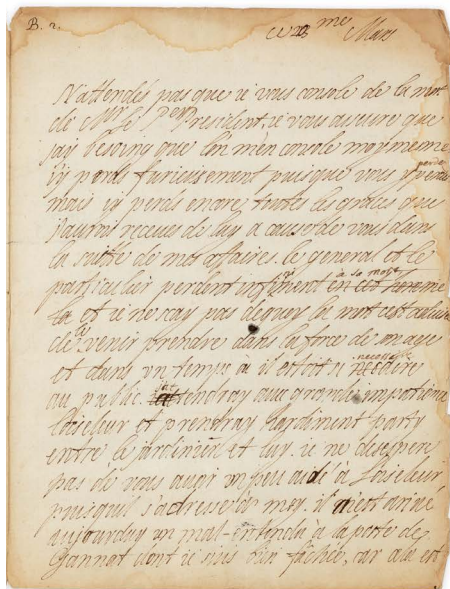 B. 2.
ce 23 me Mars
N'attendés pas que ie vous console de la mort
de Mr le Per President, ie vous assure que
jay besoing que lon men console moy mesme
iy perds furieusement puisque vous y perdes
mais iy perds encore toutes les graces que
iaurois receues de luy a cause de vous dans
la suitte de mes affaires. le general et le
particulier perdent infiniment a sa mort
et ie ne scay pas de quoy la mort
de le venir prendre dans la force de son age
et dans un temps ou il estoit si necessaire
au public. iattendray avec grande impatience
Loiseleur et prendray hardiment party
entre le jardinier et luy. ie ne desespere
pas de vous avoir un peu aidé a Loiseleur
puisquil s'adresse a moy. il m'est arrivé
aujourduy un mal-entendu à la porte de
Gannat dont ie suis bien fachée, car elle est